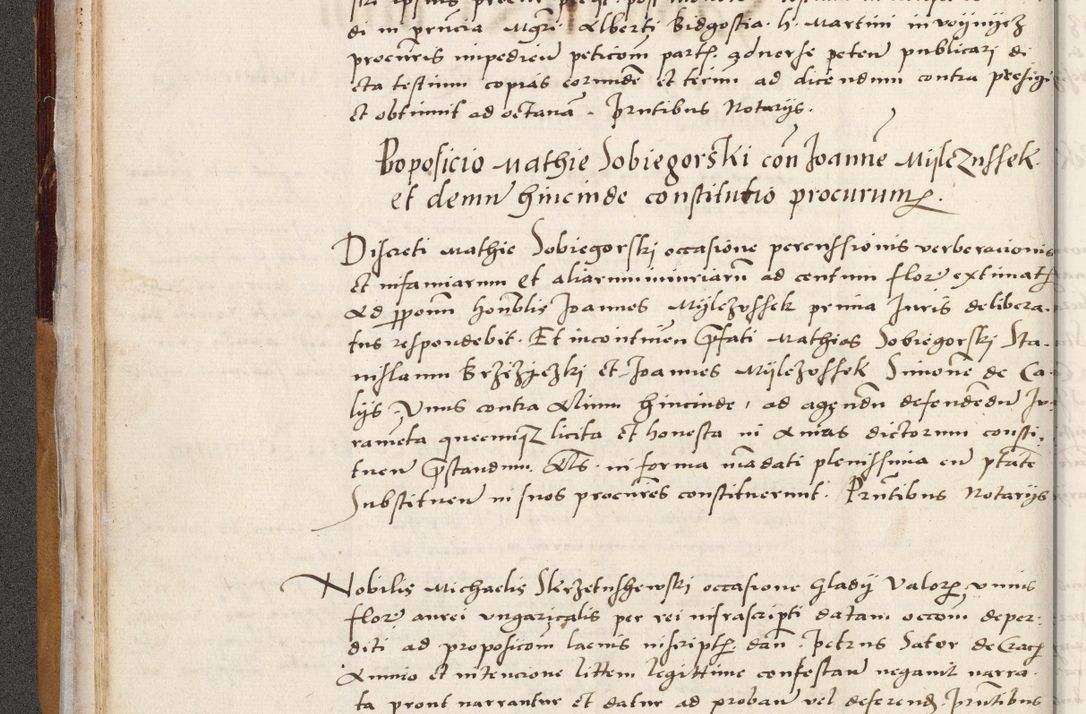 di in prñcia Mgri Alberti Bidgostia h. Martini in voynyez
procuris impedien peticom part. adverse peten publicari di
cta testium copias eorunde et termi ad dicendum contra
et obtinuit ad octanã. Prntibus Notarijs.
Poposicio Mathie Sobiegorski cõn Joanne Mijlczussek
et demu hincinde constitutio procurum.
Discreti Mathie Sobiegorski occasione percussionis verberacionis
et infamiarum et aliarum iniuriaru ad centum flor extimat
ad pponu honblis Joannes Mijlczossek prima Juris delibera-
tus respondebit. Et incontinen pfati Mathias Sobiegorski Sta-
nislaum Brzezijczki et Joannes Mijlczossek Simone de Ca-
lijs Unus contra Alium hincinde, ad agendu defendedu Ju-
rameta quecumqz licita et honesta in Animas dictorum consti-
tuen pstandum. Als. in forma madati plenissima cu ptate
Substituen in suos procures constituerunt. Prntibus Notarijs
Nobilis Michaelis Skrzetussewski occasione Gladij Valor unius
flor aurei ungaricalis per rei infrascripti datam occom deper-
diti ad proposicom laenis inscript. dañ. Petrus Sator de Crac
Animo et intencione littem legittime contestan negavit narra-
ta prout narrantur et datur ad proban vel deferend. Prntibus